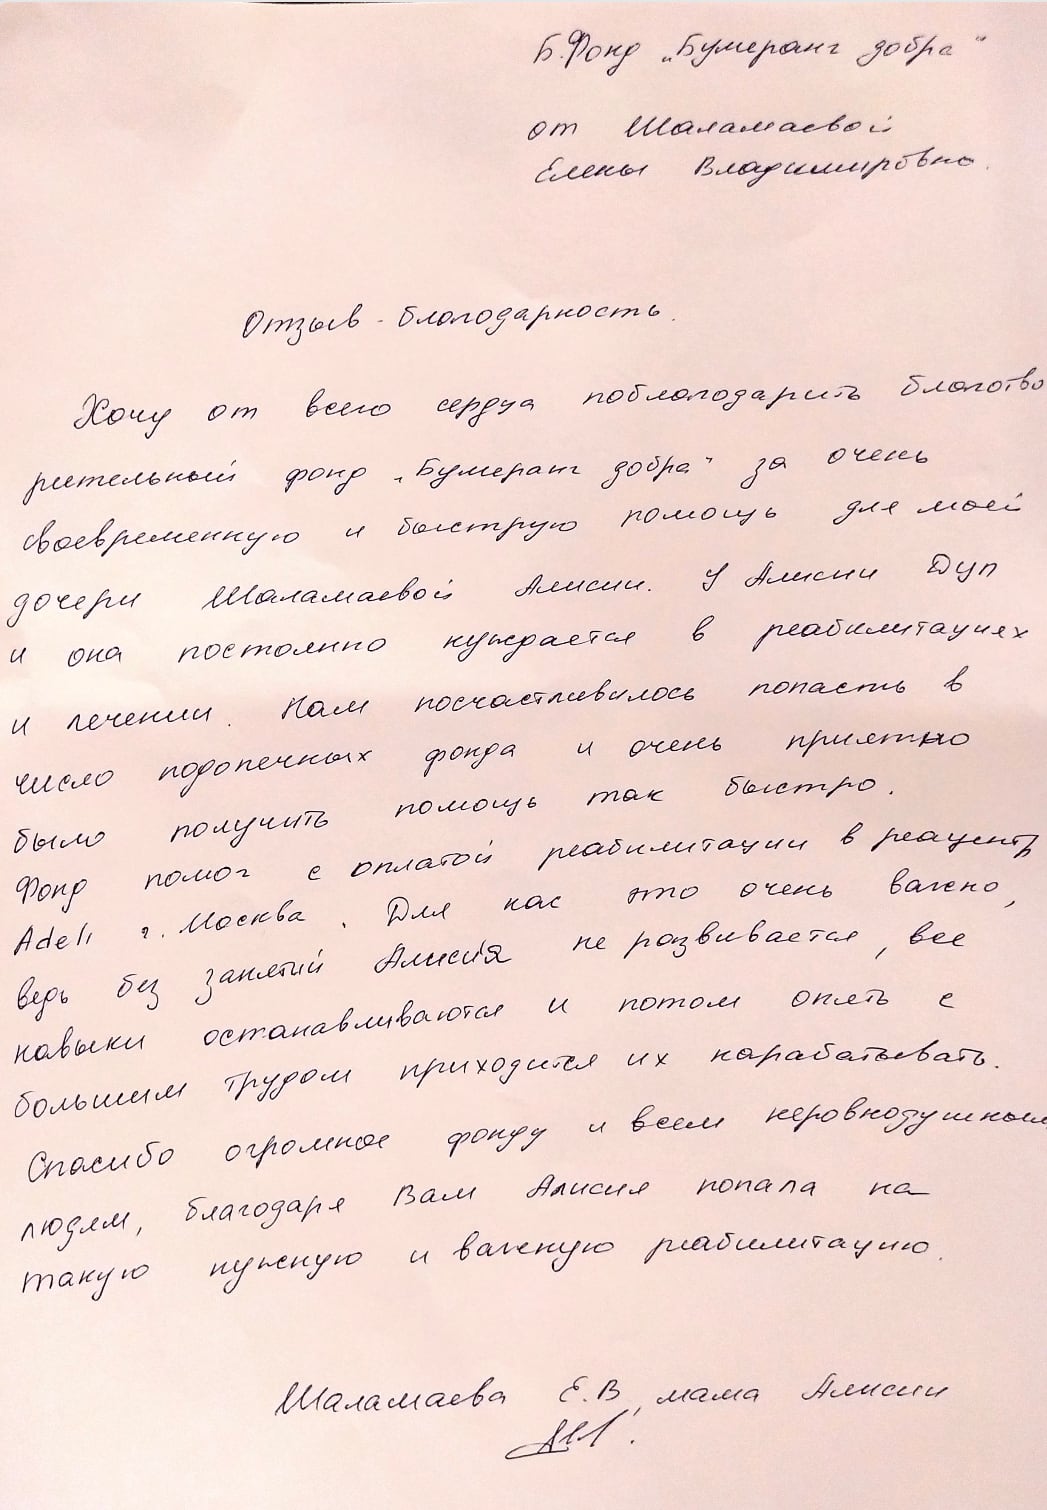 Б.Фонд „Бумеранг добра"
от Шаламаевой
Елены Владимировны.
Отзыв - благодарность.
Хочу от всего сердца поблагодарить благотво
рительный фонд „Бумеранг добра" за очень
своевременную и быструю помощь для моей
дочери Шаламаевой Алисии. У Алисии Дцп
и она постоянно нуждается в реабилитациях
и лечении. Нам посчастливилось попасть в
число подопечных фонда и очень приятно
было получить помощь так быстро.
Фонд помог с оплатой реабилитации в реацентр
Adeli г. Москва. Для нас это очень важно,
ведь без занятий Алисия не развивается, все
навыки останавливаются и потом опять с
большим трудом приходится их нарабатывать.
Спасибо огромное фонду и всем неравнодушным
людям, благодаря Вам Алисия попала на
такую нужную и важную реабилитацию.
Шаламаева Е.В, мама Алисии